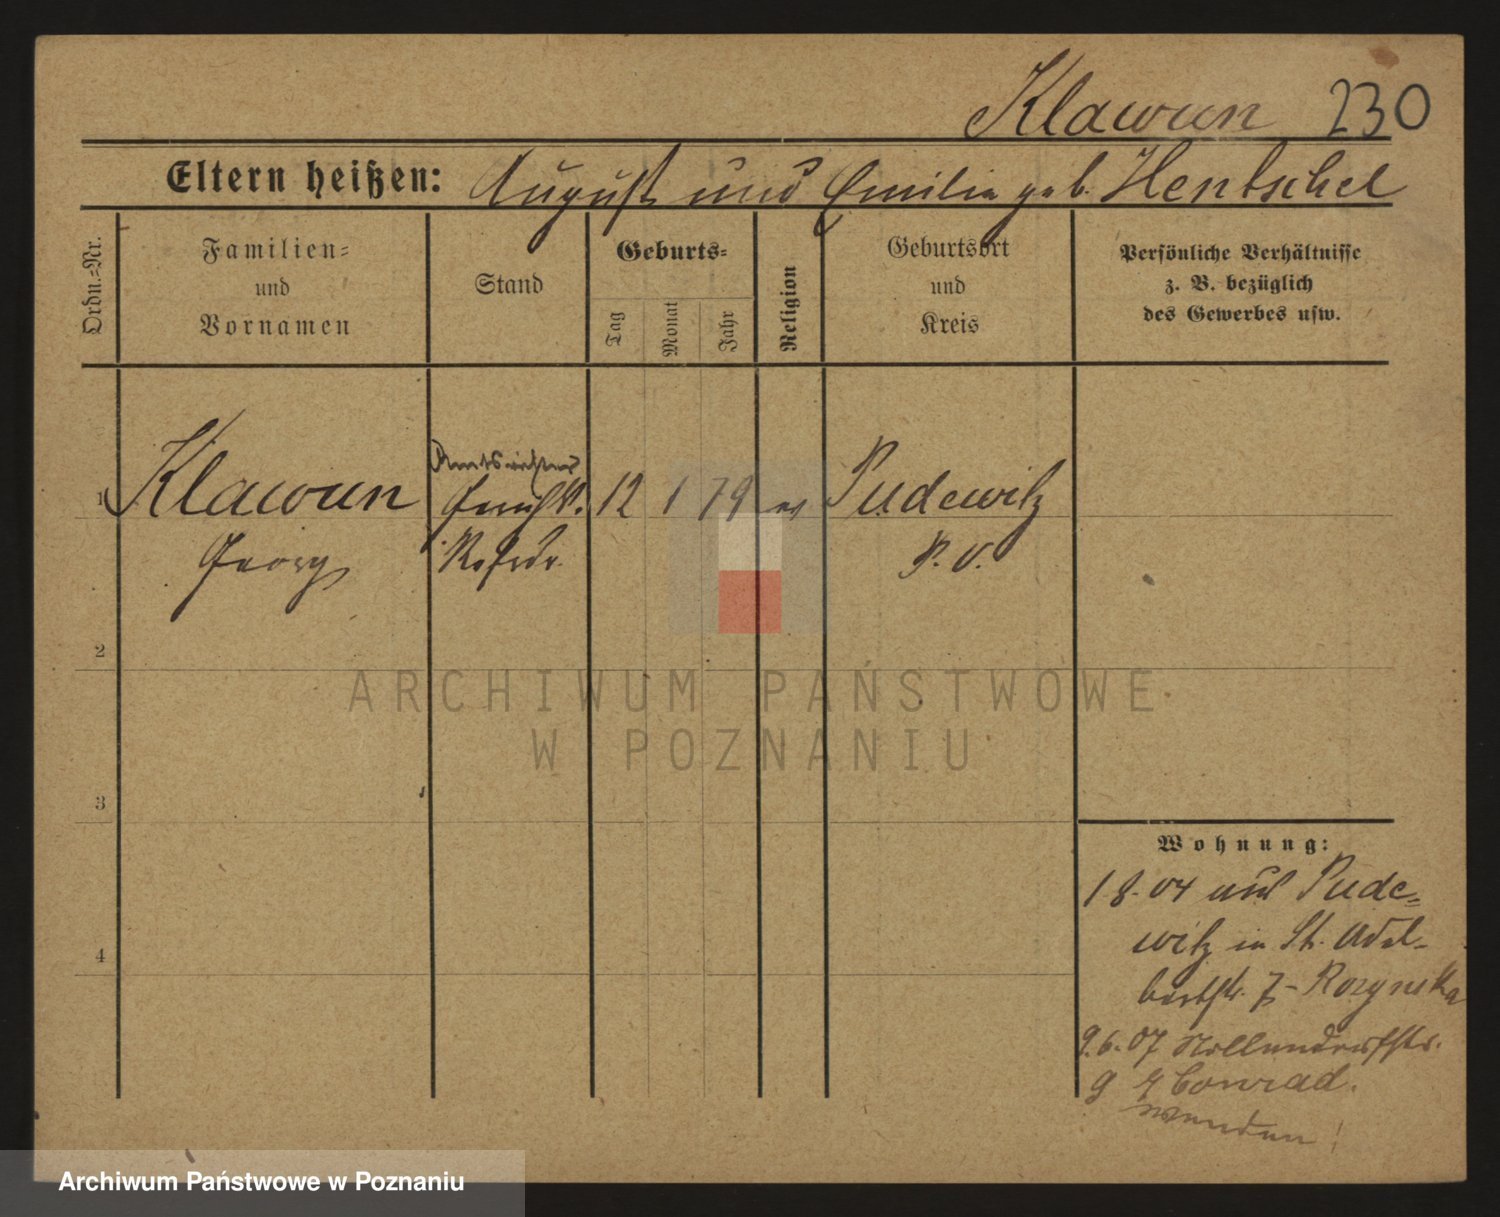 Klawun 230
Eltern heißen: August und Emilie geb. Hentschel
Ordn.-Nr.
Familien-
und
Vornamen
Stand
Geburts-
Tag
Monat
Jahr
Religion
Geburtsort
und
Kreis
Persönliche Verhältnisse
z. B. bezüglich
des Gewerbes usw.
Amtsrichter
1 Klawun 12 1 79 ev Pudewitz
Georg Refrdr. P. O.
2
ARCHIWUM PAŃSTWOWE
W POZNANIU
3
Wohnung:
1.8.04 aus Pude-
witz in St. Adal-
4
bertstr. 7 - Rozynska
9.6.07 Nollendorfstr.
9 Conrad.
wenden!
Archiwum Państwowe w Poznaniu